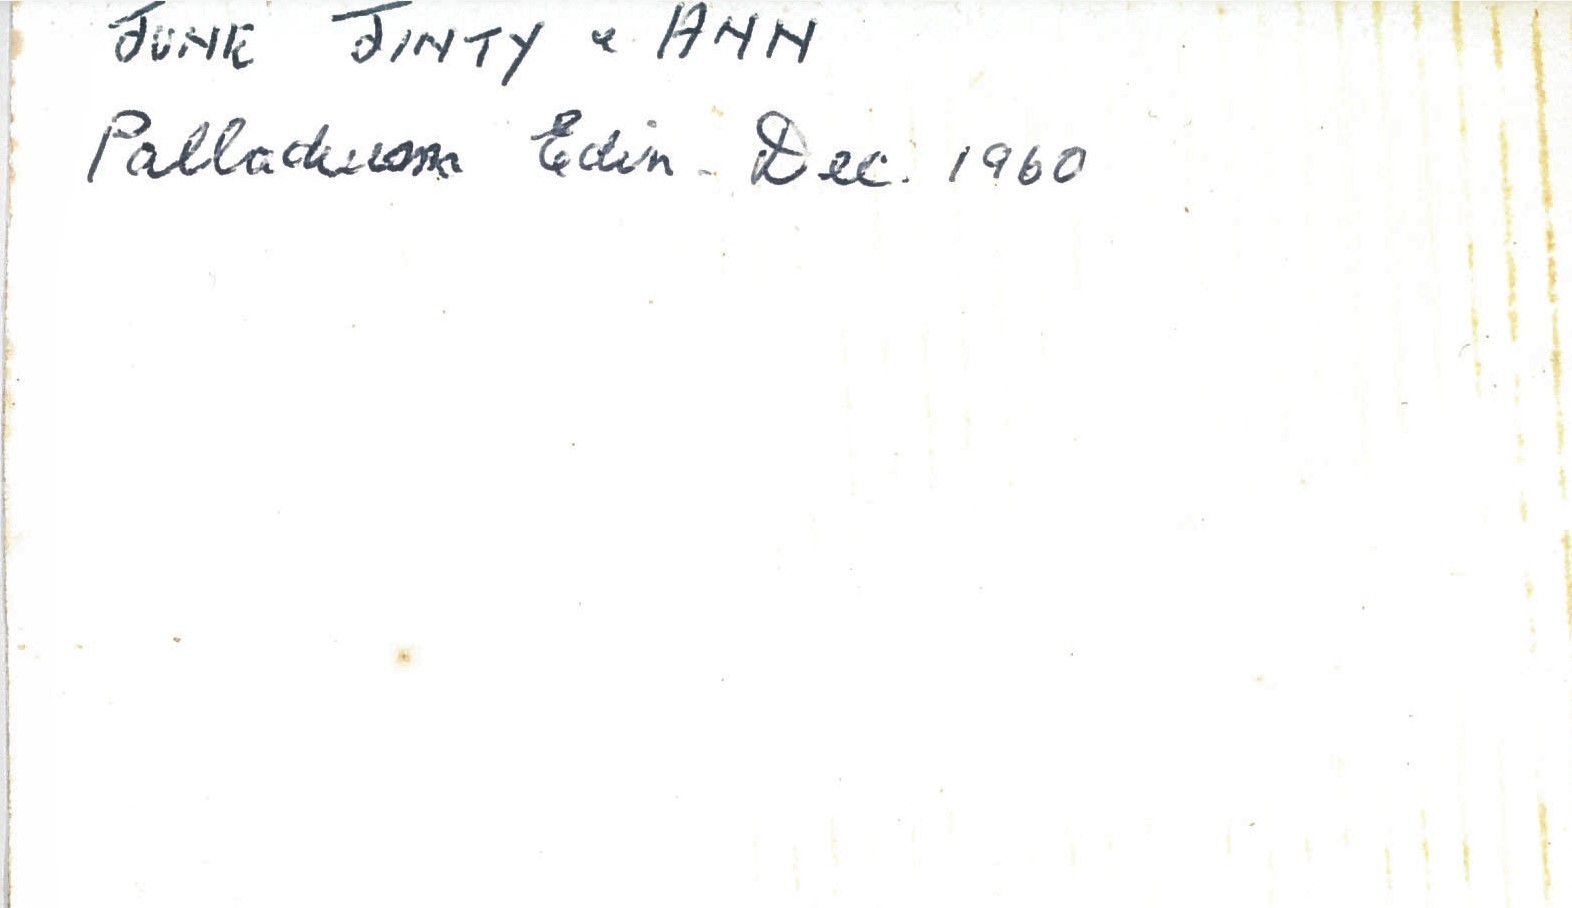 JUNE JINTY & ANN
Palladium Edin. Dec. 1960